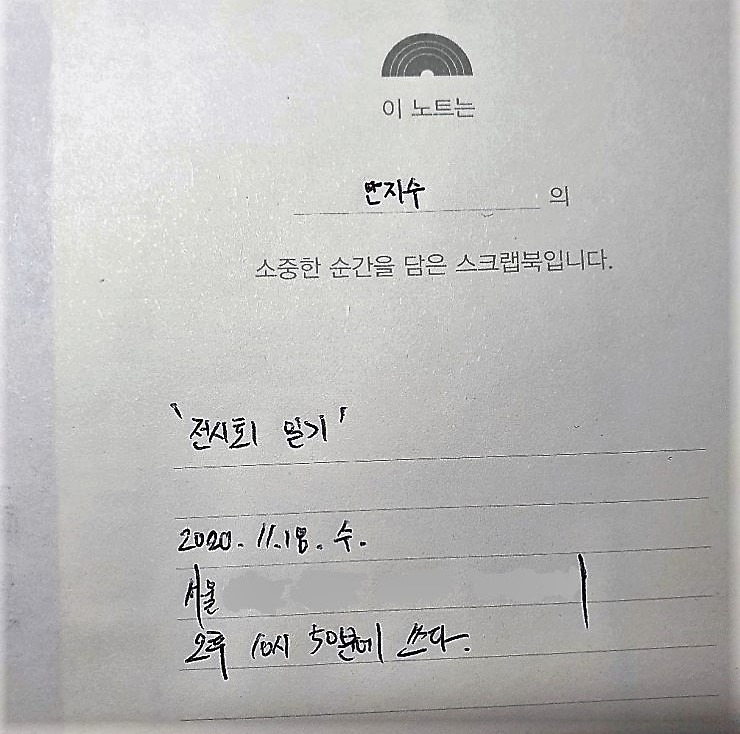 이 노트는
반지수 의
소중한 순간을 담은 스크랩북입니다.
'전시회 일기'
2020. 11. 18. 수.
서울
오후 10시 51분에 쓰다.